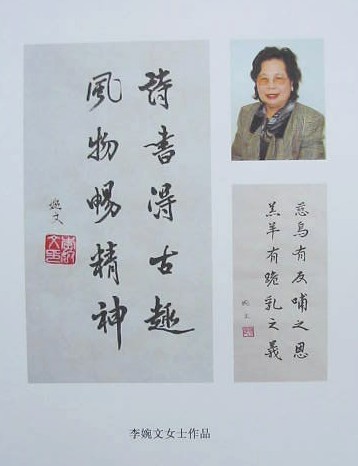 詩書得古趣
風物暢精神
婉文
慈烏有反哺之恩
羔羊有跪乳之義
婉文
李婉文女士作品